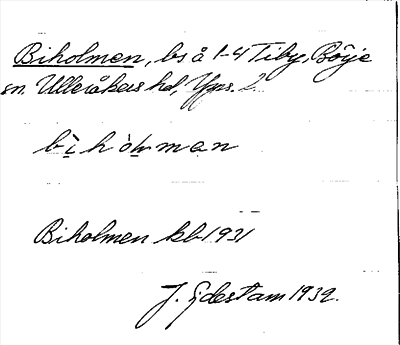 Biholmen, bs å 1-4 Tiby, Börje
sn Ulleråkers hd, Ups. 2
Biholmen kb 1931
J. Gjdestam 1932.